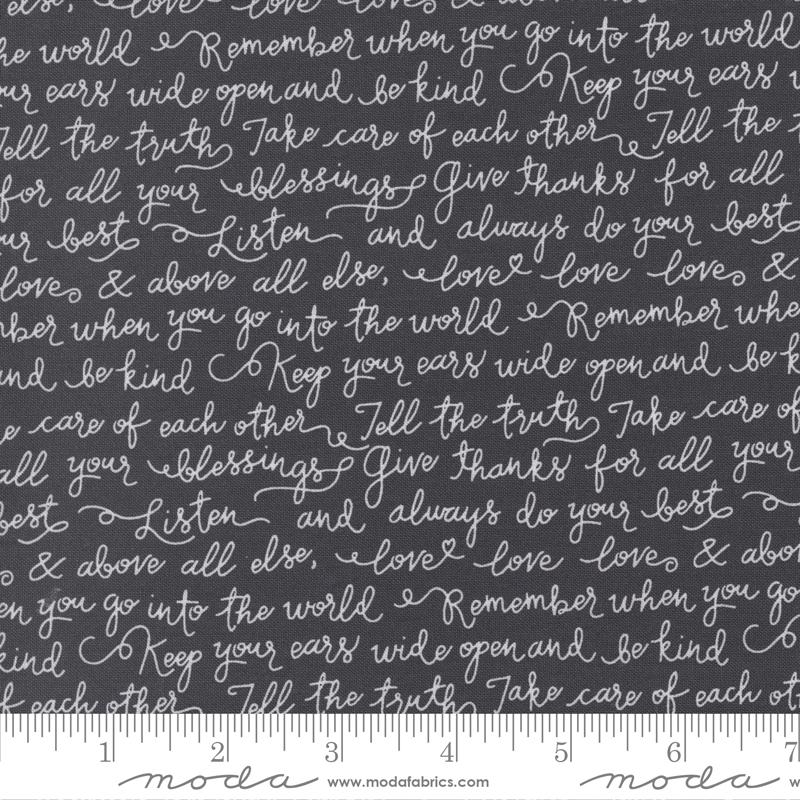 else, love love loves & above
he world Remember when you go into the world
ur ears wide open and be kind Keep your ears
Tell the truth Take care of each other Tell the
for all your blessings Give thanks for all
ur best Listen and always do your best
love & above all else, love love love &
ber when you go into the world Remember whe
and be kind Keep your ears wide open and be k
e care of each other Tell the truth Take care of
all your blessings Give thanks for all your
best Listen and always do your best
& above all else, love love love & abo
en you go into the world Remember when you go
kind Keep your ears wide open and be kind
of each other Tell the truth Take care of each ot
1 2 3 4 5 6 7
moda www.modafabrics.com moda w